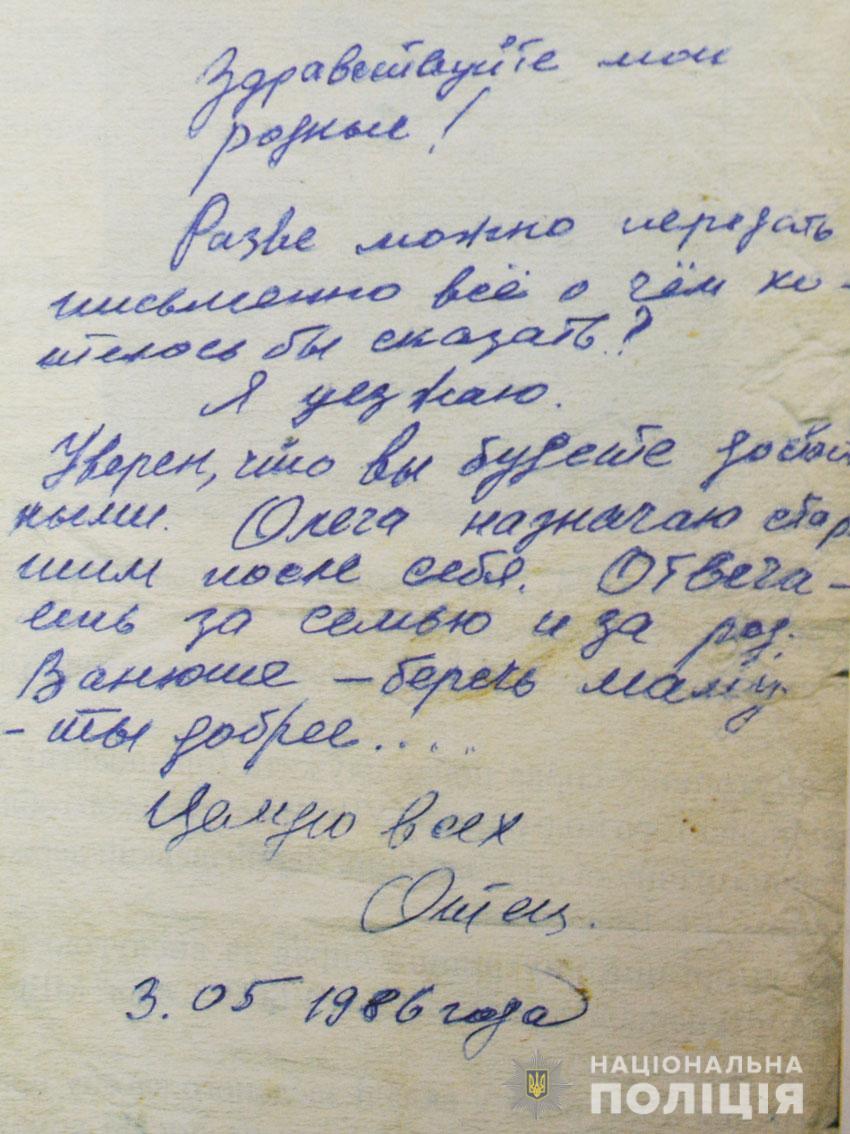 Здравствуйте мои
родные!
Разве можно передать
письменно всё о чём хо-
телось бы сказать?
Я уезжаю.
Уверен, что вы будете достой
ными. Олега назначаю стар
шим после себя. Отвеча-
ешь за семью и за род.
Ванюше - беречь маму
- ты добрее....
Целую всех
Отец.
3.05 1986 года
НАЦІОНАЛЬНА
ПОЛІЦІЯ